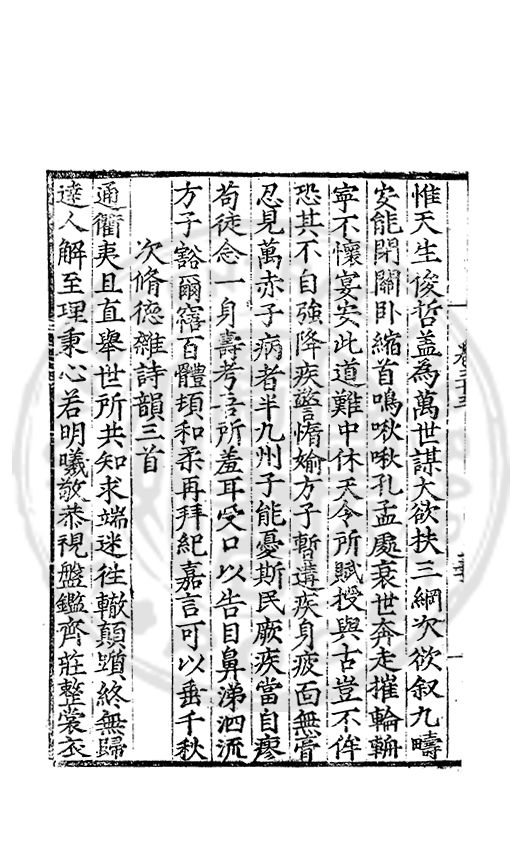 惟天生俊哲盖為萬世謀大欲扶三綱次欲叙九疇
安能閉關卧縮首鳴啾啾孔孟處衰世奔走摧輪輈
寧不懷宴安此道難中休天令所賦授與古豈不侔
恐其不自強降疾警惰媮方子暫遘疾身疲面無膏
忍見萬赤子病者半九州子能憂斯民厥疾當自瘳
苟徒念一身壽考吾所羞耳受口以告目鼻涕泗流
方子豁爾寤百體頃和柔再拜紀嘉言可以垂千秋
次脩德雜詩韻三首
通衢夷且直舉世所共知求端迷徃轍顛躓終無歸
達人解至理秉心若明曦敬恭視盤鑑齊莊整裳衣